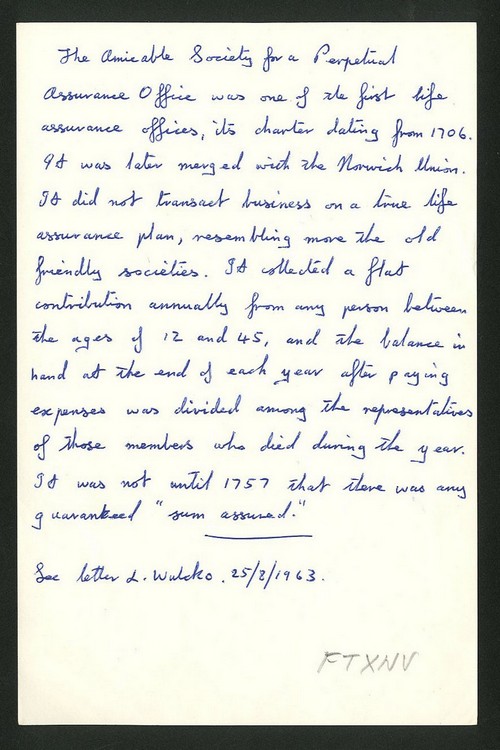 The Amicable Society for a Perpetual
Assurance Office was one of the first life
assurance offices, its charter dating from 1706.
It was later merged with the Norwich Union.
It did not transact business on a true life
assurance plan, resembling more the old
friendly societies. It collected a flat
contribution annually from any person between
the ages of 12 and 45, and the balance in
hand at the end of each year after paying
expenses was divided among the representatives
of those members who died during the year.
It was not until 1757 that there was any
guaranteed "sum assured."
See letter L. 25/2/1963.
FTXNV